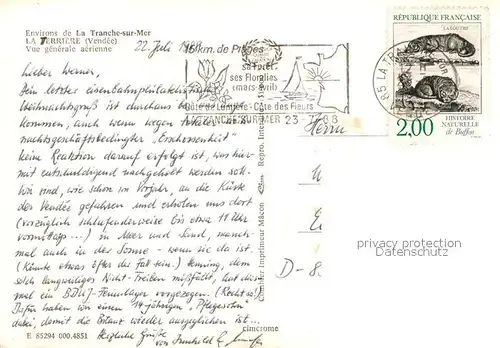 Environs de La Tranche-sur-Mer
LA TERRIÈRE (Vendée)
Vue générale aérienne
22. Juli 1988
15 km. de Plages
sa Forêt
ses Floralies
(mars-avril)
Côte de Lumière-Côte des Fleurs
LA TRANCHE-SUR-MER 23-7 88
RÉPUBLIQUE FRANÇAISE
LA LOUTRE
2,00
HISTOIRE
NATURELLE
de Buffon
85 LA TRA
Lieber Werner,
Dein letzter eisenbahnphilatelistischer
Weihnachtsgruß ist durchaus
kommen, auch wenn wegen totaler
nachtsgeschäftsbedingter "Erschossenheit"
keine Reaktion darauf erfolgt ist, was hier-
mit entschuldigend nachgeholt werden soll.
Wir sind, wie schon im Vorjahr, an die Küste
der Vendée gefahren und erholen uns dort
(vorzüglich schlafenderweise bis etwa 11 Uhr
vormittags...) in Meer und Sand, manch-
mal auch in der Sonne - wenn sie da ist.
(Könnte etwas öfter das Fall sein.) Henning, dem
solch langweiliges Nicht-Treiben mißfällt, hat dies-
mal ein Ferienlager vorgezogen. (Recht so!)
Dafür haben wir einen 14-jährigen "Pflegesohn"
dabei, damit die Bilanz wieder ausgeglichen ist...
Herzliche Grüße
von
Herrn
W
E
D-8
Chambier Imprimeur Mâcon
Repro. Inter
privacy protection
cimcrome
E 85294 000.4851